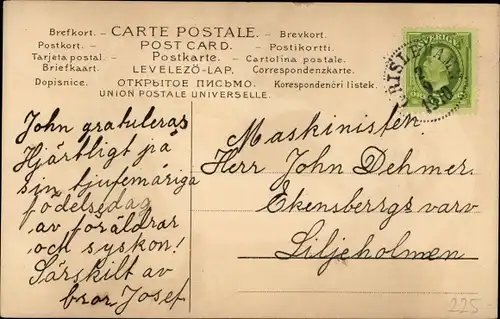 Brefkort. – CARTE POSTALE. – Brevkort.
Postkort. – POST CARD. – Postikortti.
Tarjeta postal. – Postkarte. – Cartolina postale.
Briefkaart. – LEVELEZŐ-LAP. – Correspondenzkarte.
Dopisnice. – ОТКРЫТОЕ ПИСЬМО. – Korespondenční listek.
UNION POSTALE UNIVERSELLE.
SVERIGE
1910
John gratuleras
Hjärtligt på
sin tjufemåriga
födelsedag
av föräldrar
och syskon!
Särskilt av
bror Josef
Maskinisten
Herr John Dehmer.
Ekensbergs varv
Liljeholmen
225